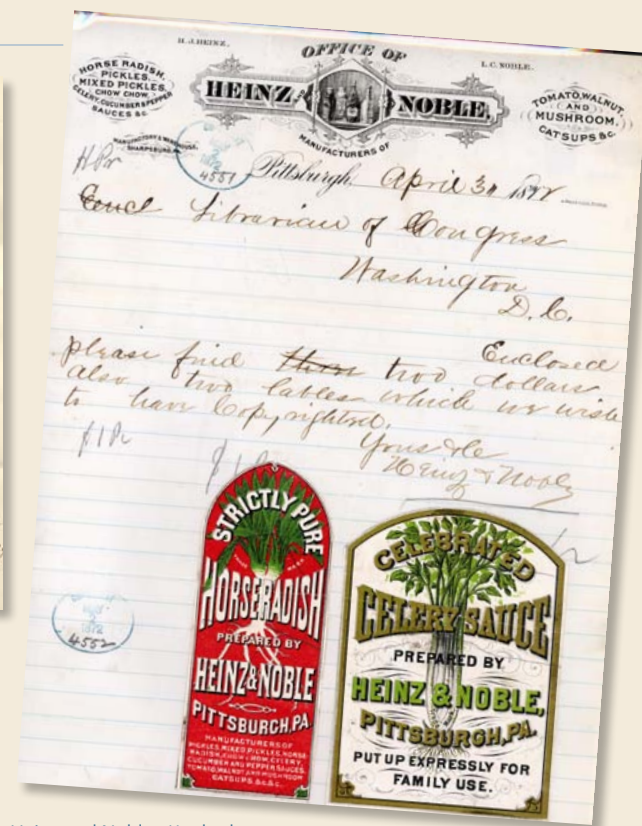 H. J. HEINZ.
OFFICE OF
L. C. NOBLE.
HORSE RADISH,
PICKLES,
MIXED PICKLES,
CHOW CHOW,
CELERY, CUCUMBER & PEPPER
SAUCES &c.
HEINZ, NOBLE,
TOMATO, WALNUT,
AND
MUSHROOM,
CATSUPS &c.
MANUFACTURERS OF
MANUFACTORY & WAREHOUSE,
SHARPSBURG.
1872
4551
Pittsburgh, April 3rd 1872
Librarian of Congress
Washington
D.C.
Enclosed
please find two dollars
also two lables which we wish
to have Copyrighted.
Yours &c
Heinz & Noble
1872
4552
STRICTLY PURE
TRADE MARK
HORSERADISH
PREPARED BY
HEINZ & NOBLE
PITTSBURGH, PA.
MANUFACTURERS OF
PICKLES, MIXED PICKLES, HORSE-
RADISH, CHOW CHOW, CELERY,
CUCUMBER AND PEPPER SAUCES,
TOMATO, WALNUT AND MUSHROOM
CATSUPS &c. &c.
CELEBRATED
CELERY SAUCE
PREPARED BY
HEINZ & NOBLE,
PITTSBURGH, PA.
PUT UP EXPRESSLY FOR
FAMILY USE.